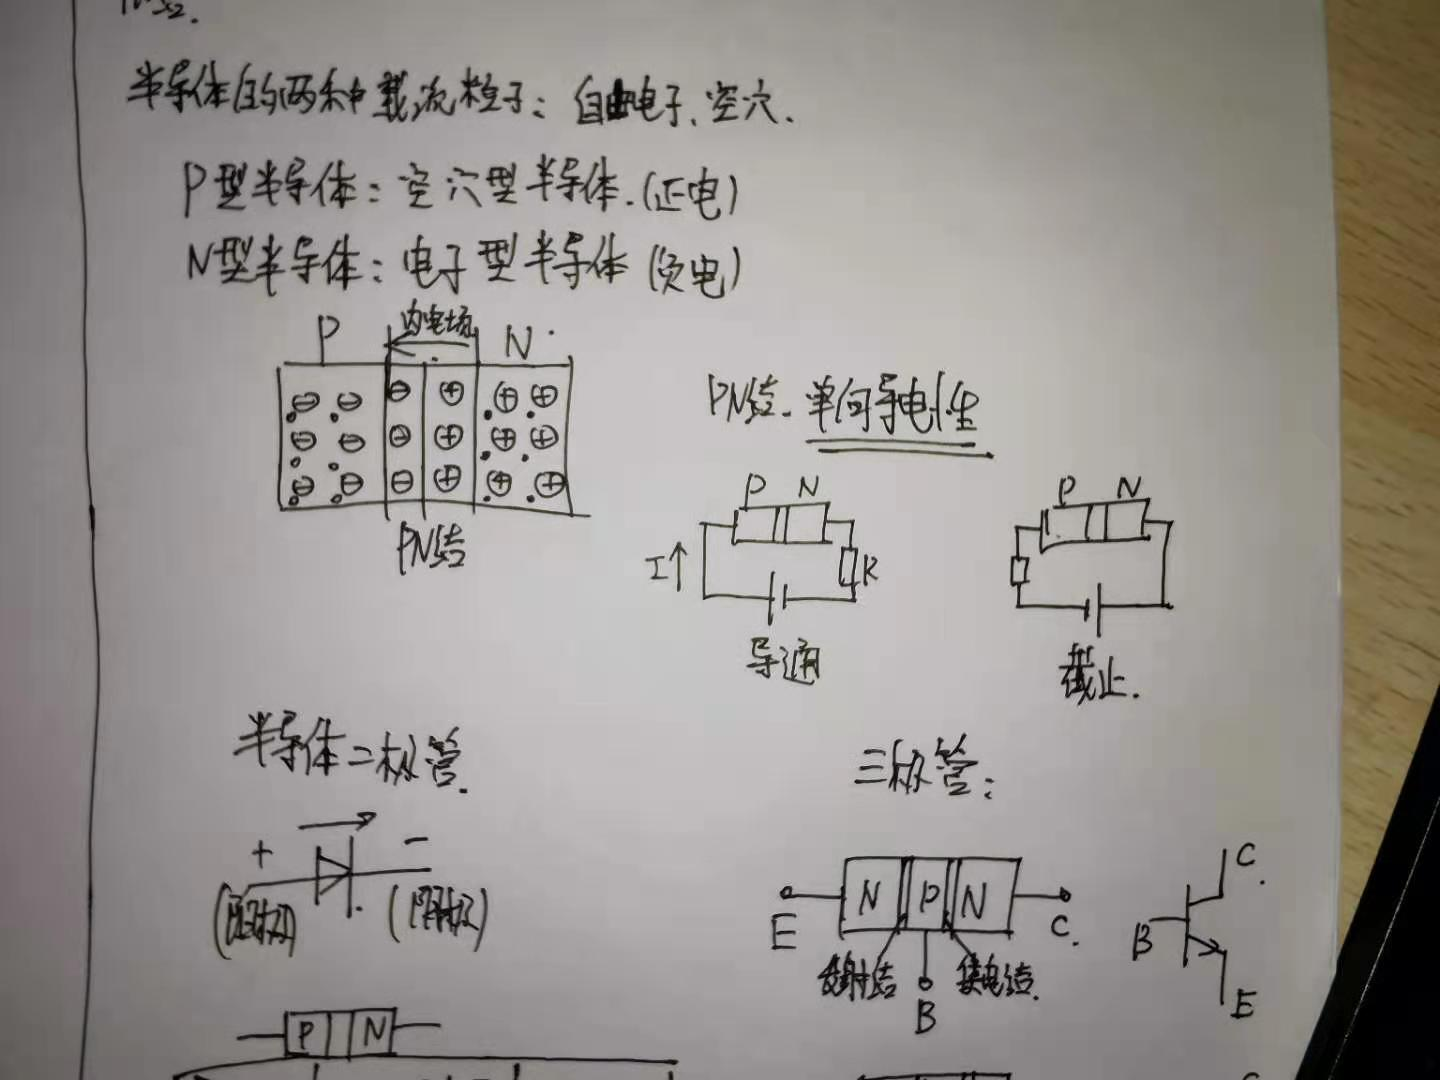 半导体的两种载流粒子：自由电子、空穴.
P型半导体：空穴型半导体.(正电)
N型半导体：电子型半导体(负电)
P 内电场 N
PN结
PN结. 单向导电性
P N
I R
导通
P N
截止.
半导体二极管.
+ -
(阳极) (阴极)
P N
三极管：
N P N
E C.
发射结 集电结.
B
C.
B
E